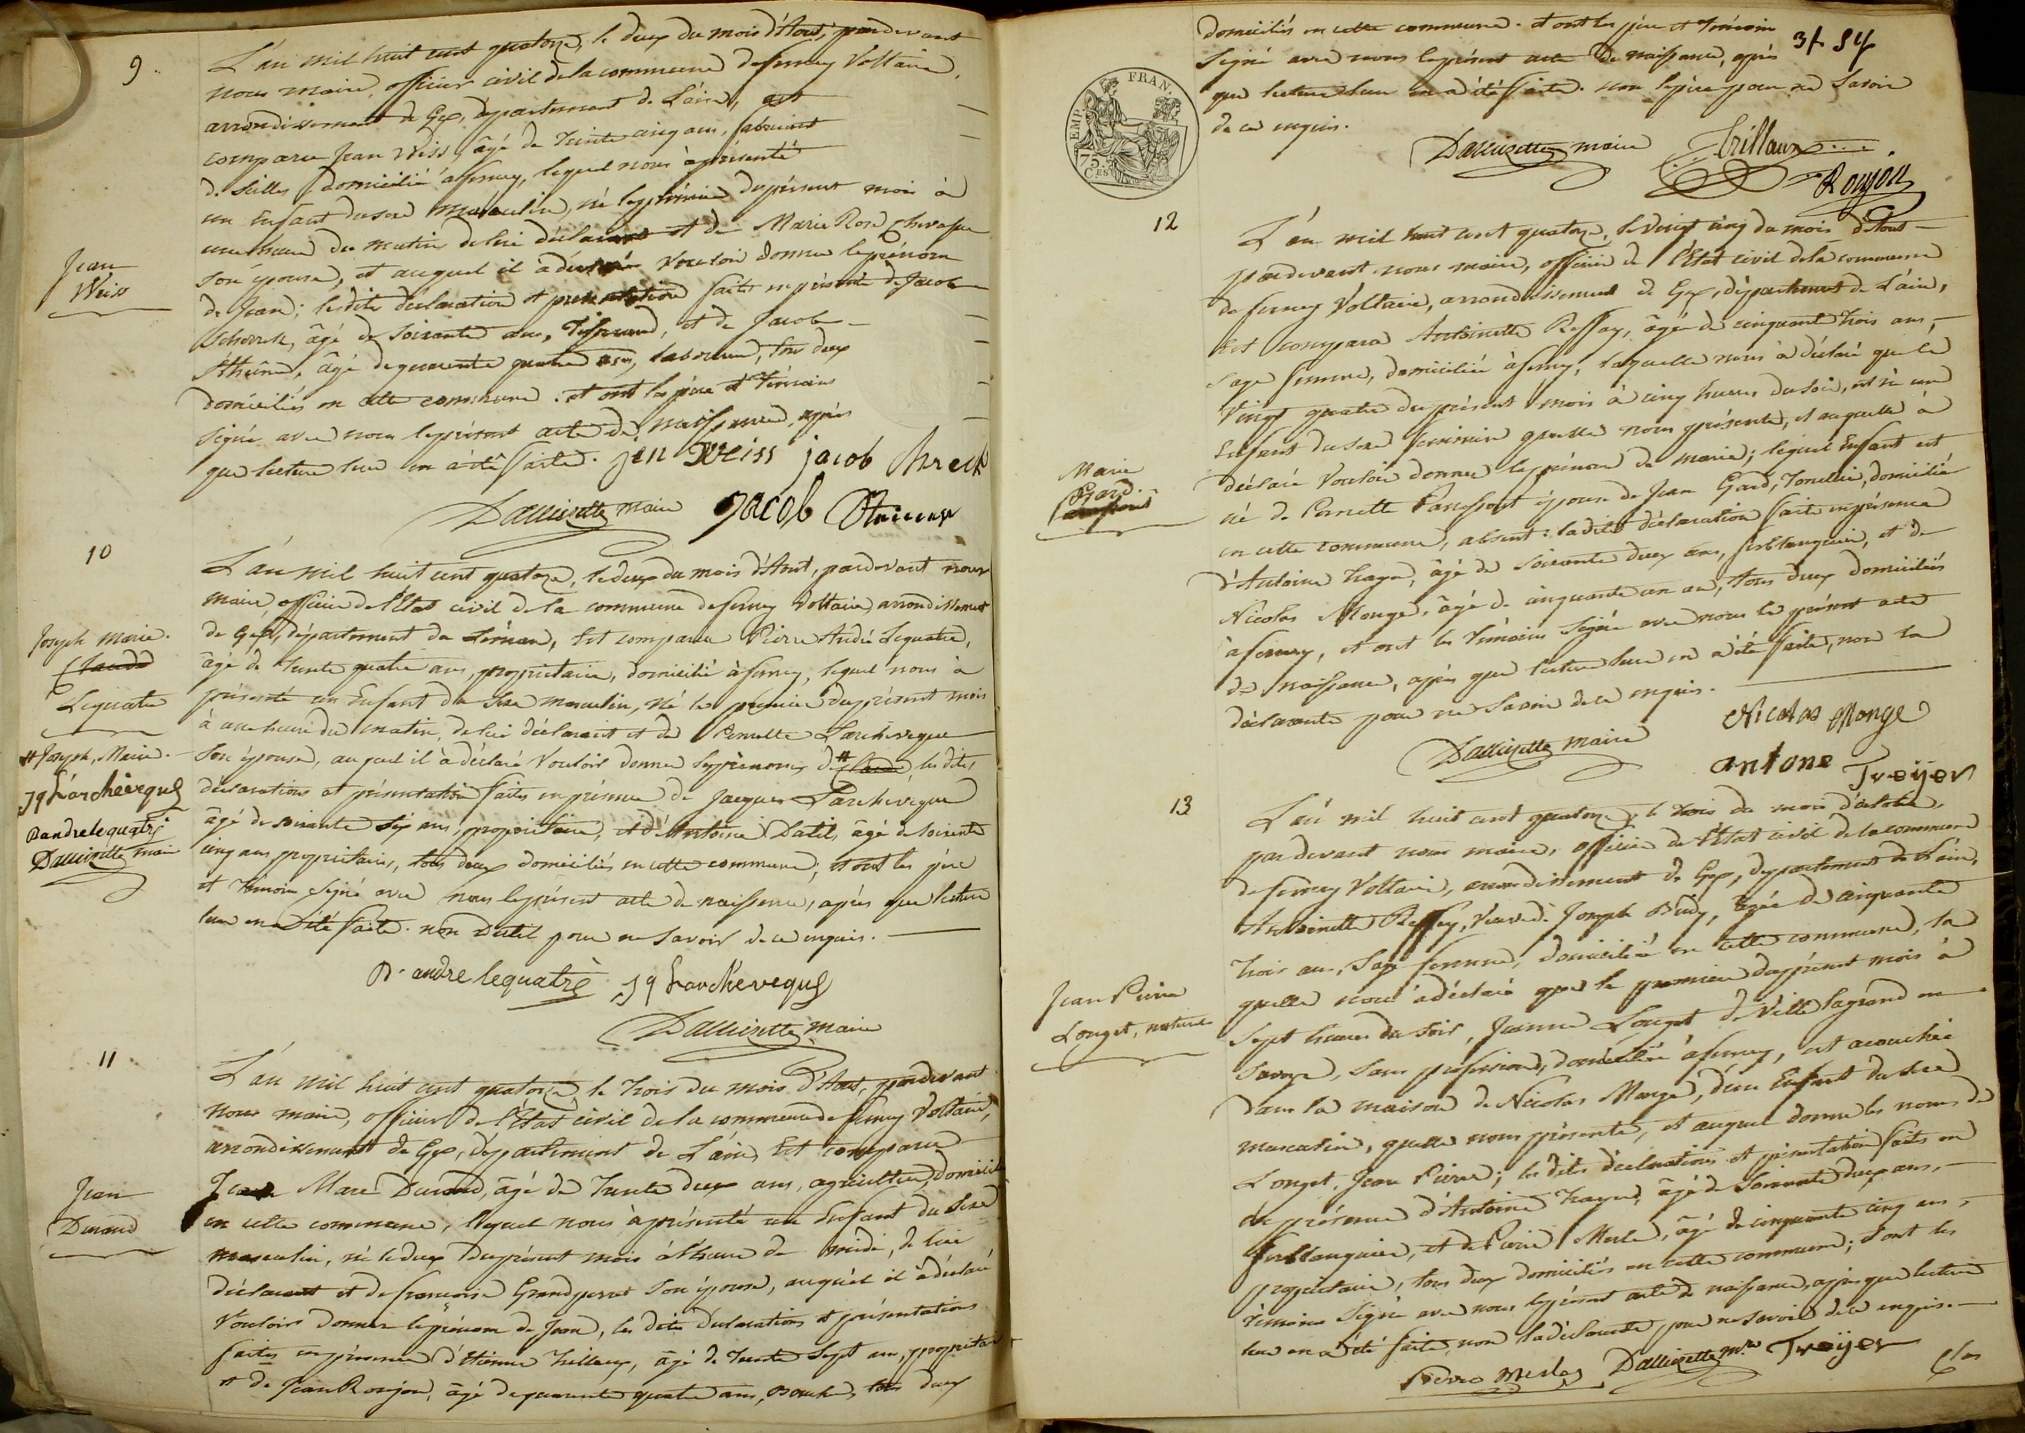 9.
L'an mil huit cent quatorze, le deux du mois d'Aout, pardevant
nous maire, officier civil de la commune de ferney Voltaire,
arrondissement de Gex, département de L'ain, est
comparu Jean Weiss, âgé de trente cinq ans,
domicilié à ferney, lequel nous à présenté
un Enfant du sexe masculin, né le premier du présent mois à
une heure du matin de lui déclarant et de Marie Rose
son épouse, et auquel il à déclaré vouloir donner le prénom
de Jean; les dite déclaration et présentation faites en présence de Jacob
Schreck, âgé de soixante ans, Tisserand, et de Jacob
âgé de quarante quatre ans, laboureur, tous deux
domiciliés en cette commune. et ont les père et Témoins
signé avec nous le présent acte de naissance, après
que lecture leur en à été faite.
Jean
Weiss
jen Weiss jacob
Dallizette maire Jacob
10
L'an mil huit cent quatorze, le deux du mois d'Aout, pardevant nous
maire officier de l'Etat civil de la commune de ferney Voltaire arrondissement
de Gex, département du Léman, Est comparu Pierre André Lequatre,
âgé de trente quatre ans, propriétaire, domicilié à ferney, lequel nous à
présenté un Enfant du sexe masculin, né le premier du présent mois
à une heure du matin, de lui déclarant et de Pernette Larcheveque
son épouse, auquel il à déclaré vouloir donner les prénoms de # Claude les dites
déclarations et présentation faites en présence de Jacques Larcheveque
âgé de soixante six ans, propriétaire, et d'Antoine Datil, âgé de soixante
cinq ans propriétaire, tous deux domiciliés en cette commune; et ont les père
et Témoin signé avec nous le présent acte de naissance, après que lecture
leur en à été faite. non Datil pour ne savoir de ce enquis.
Joseph Marie.
Claude
Lequatre
# Joseph, Marie.
Jq Larcheveque
P andre lequatre
Dallizette maire
P. andre lequatre Jq Larcheveque
Dallizette maire
11
L'an mil huit cent quatorze, le trois du mois d'Aout, pardevant
nous maire, officier de l'Etat civil de la commune de ferney Voltaire,
arrondissement de Gex, département de L'ain, Est comparu
Jean Marc Durand, âgé de trente deux ans, agriculteur, domicilié
en cette commune, lequel nous à présenté un Enfant du sexe
masculin, né le deux du présent mois à l'heure de midi, de lui
déclarant et de francoise Grandperret son épouse, auquel il à déclaré
vouloir donner le prénom de Jean, les dites déclarations et présentations
faites en présence d'Etienne Trillaux, âgé de trente sept ans, propriétaire
et de Jean Roujon, âgé de quarante quatre ans, tous deux
Jean
Durand
domiciliés en cette commune. et ont les père et Témoin
signé avec nous le présent acte de naissance, après
que lecture leur en à été faite. non le père pour ne Savoir
de ce enquis.
EMP. FRAN.
75
C.ES
Dallizette maire Trillaux
Roujon
12
L'an mil huit cent quatorze, le vingt cinq du mois d'Aout
pardevant nous maire, officier de l'Etat civil de la commune
de ferney Voltaire, arrondissement de Gex, département de L'ain,
Est comparu Antoinette Reffay, âgée de cinquante trois ans,
sage femme, domiciliée à ferney, laquelle nous à déclaré que le
Vingt quatre du présent mois à cinq heures du soir, est né un
Enfant du sexe feminin quelle nous présente, et auquelle à
déclaré Vouloir donner le prénom de marie; lequel Enfant est
né de Pernette épouse de Jean Gard, Tonellier, domicilié
en cette commune, absent: la dite déclaration faite en présence
d'Antoine âgé de soixante deux ans, ferblanquier, et de
Nicolas Monge, âgé de cinquante un an, tous deux domiciliés
à ferney, et ont les témoins signé avec nous le présent acte
de naissance, après que lecture leur en à été faite, non la
déclarante pour ne savoir de ce enquis.
Marie
Gard.
Nicolas Monge
Dallizette maire
antone Treyer
13
L'an mil huit cent quatorze, le trois du mois d'octobre,
par devant nous maire, officier de l'Etat civil de la commune
de ferney Voltaire, arrondissement de Gex, departement de L'ain,
Antoinette Reffay, Veuve de Joseph Budy, âgée de cinquante
trois ans, sage femme, domiciliée en cette commune, la
quelle nous à déclaré que le premier du présent mois à
sept heures du soir, Jeanne Longet de Ville la grand en
Savoye, sans profession, domiciliée à ferney, est acouchée
dans la maison de Nicolas Monge, d'un Enfant du sexe
masculin, quelle nous présente, et auquel donne les noms de
Longet, Jean Pierre; les dites déclarations et présentation faites en
en présence d'Antoine âgé de soixante deux ans,
ferblanquier, et de Pierre Merle, âgé de cinquante cinq ans,
propriétaire, tous deux domiciliés en cette commune; et ont les
témoins signé avec nous le présent acte de naissance, après que lecture
leur en à été faite, non la déclarante pour ne savoir de ce enquis.
Jean Pierre
Longet, naturel
Pierre Merle Dallizette m.re Treyer
Clos